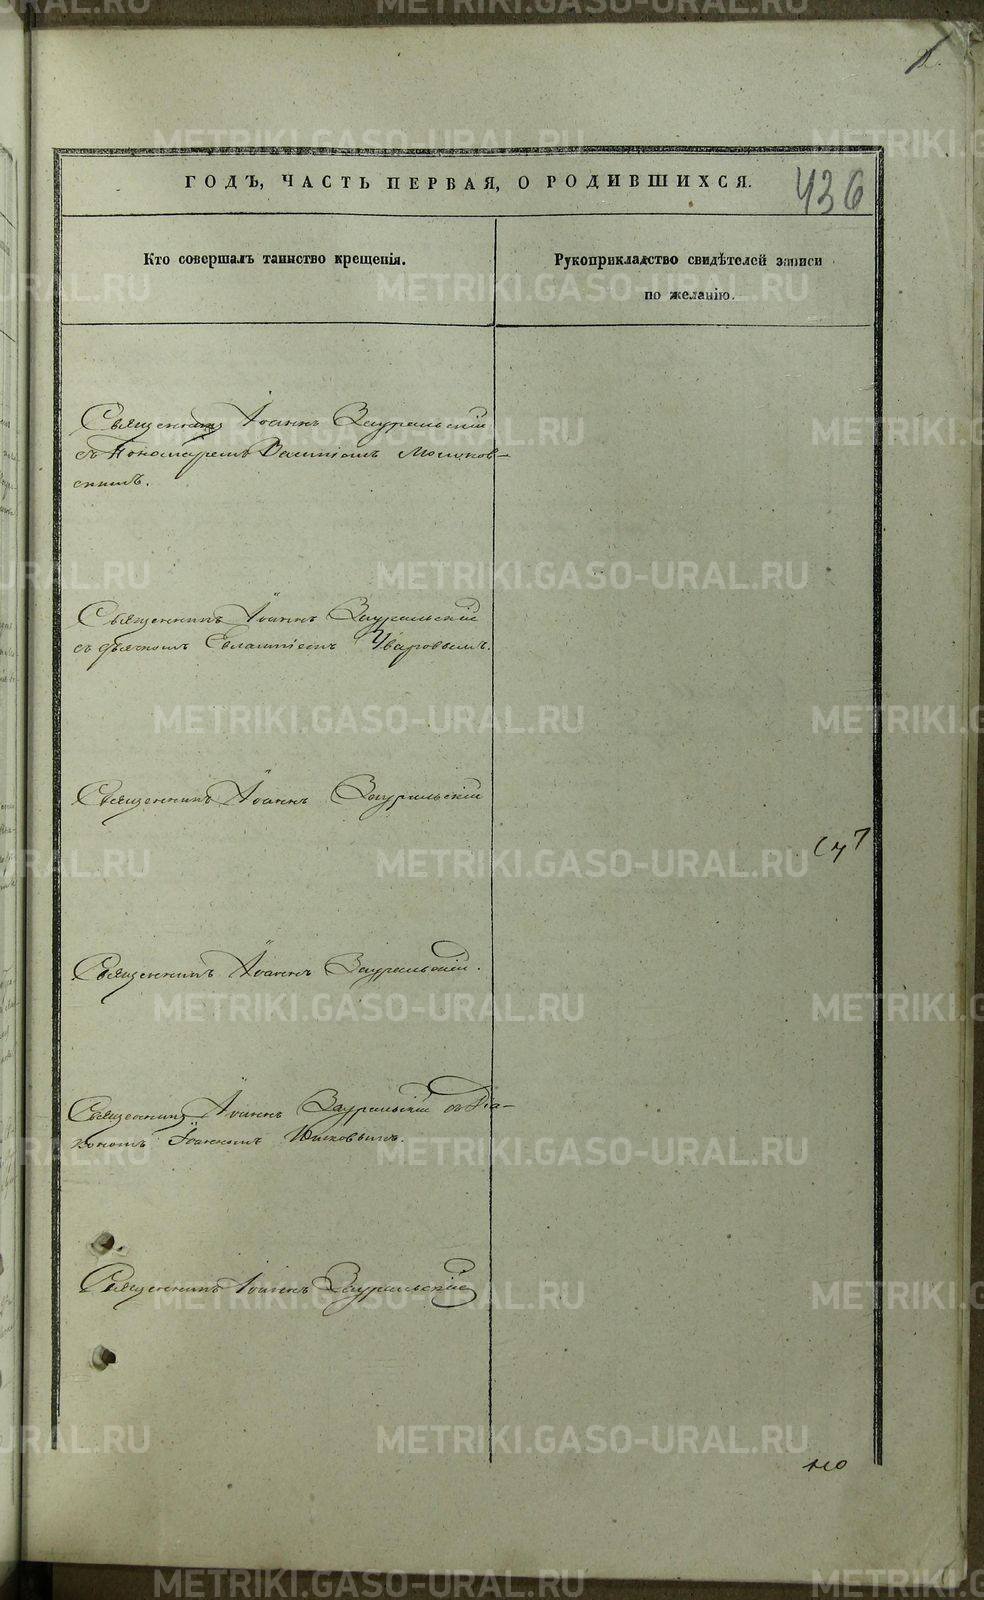 ГОДЪ, ЧАСТЬ ПЕРВАЯ, О РОДИВШИХСЯ.
436
Кто совершалъ таинство крещенія.
Рукоприкладство свидѣтелей записи
по желанію.
Священникъ Іоаннъ Зауральскій
съ Пономаремъ
скимъ.
Священникъ Іоаннъ Зауральскій
съ дьячкомъ Евлампіемъ Уваровымъ.
Священникъ Іоаннъ Зауральскій
Священникъ Іоаннъ Зауральскій.
Священникъ Іоаннъ Зауральскій съ Діа-
кономъ Іоанномъ
Священникъ Іоаннъ Зауральскій
METRIKI.GASO-URAL.RU